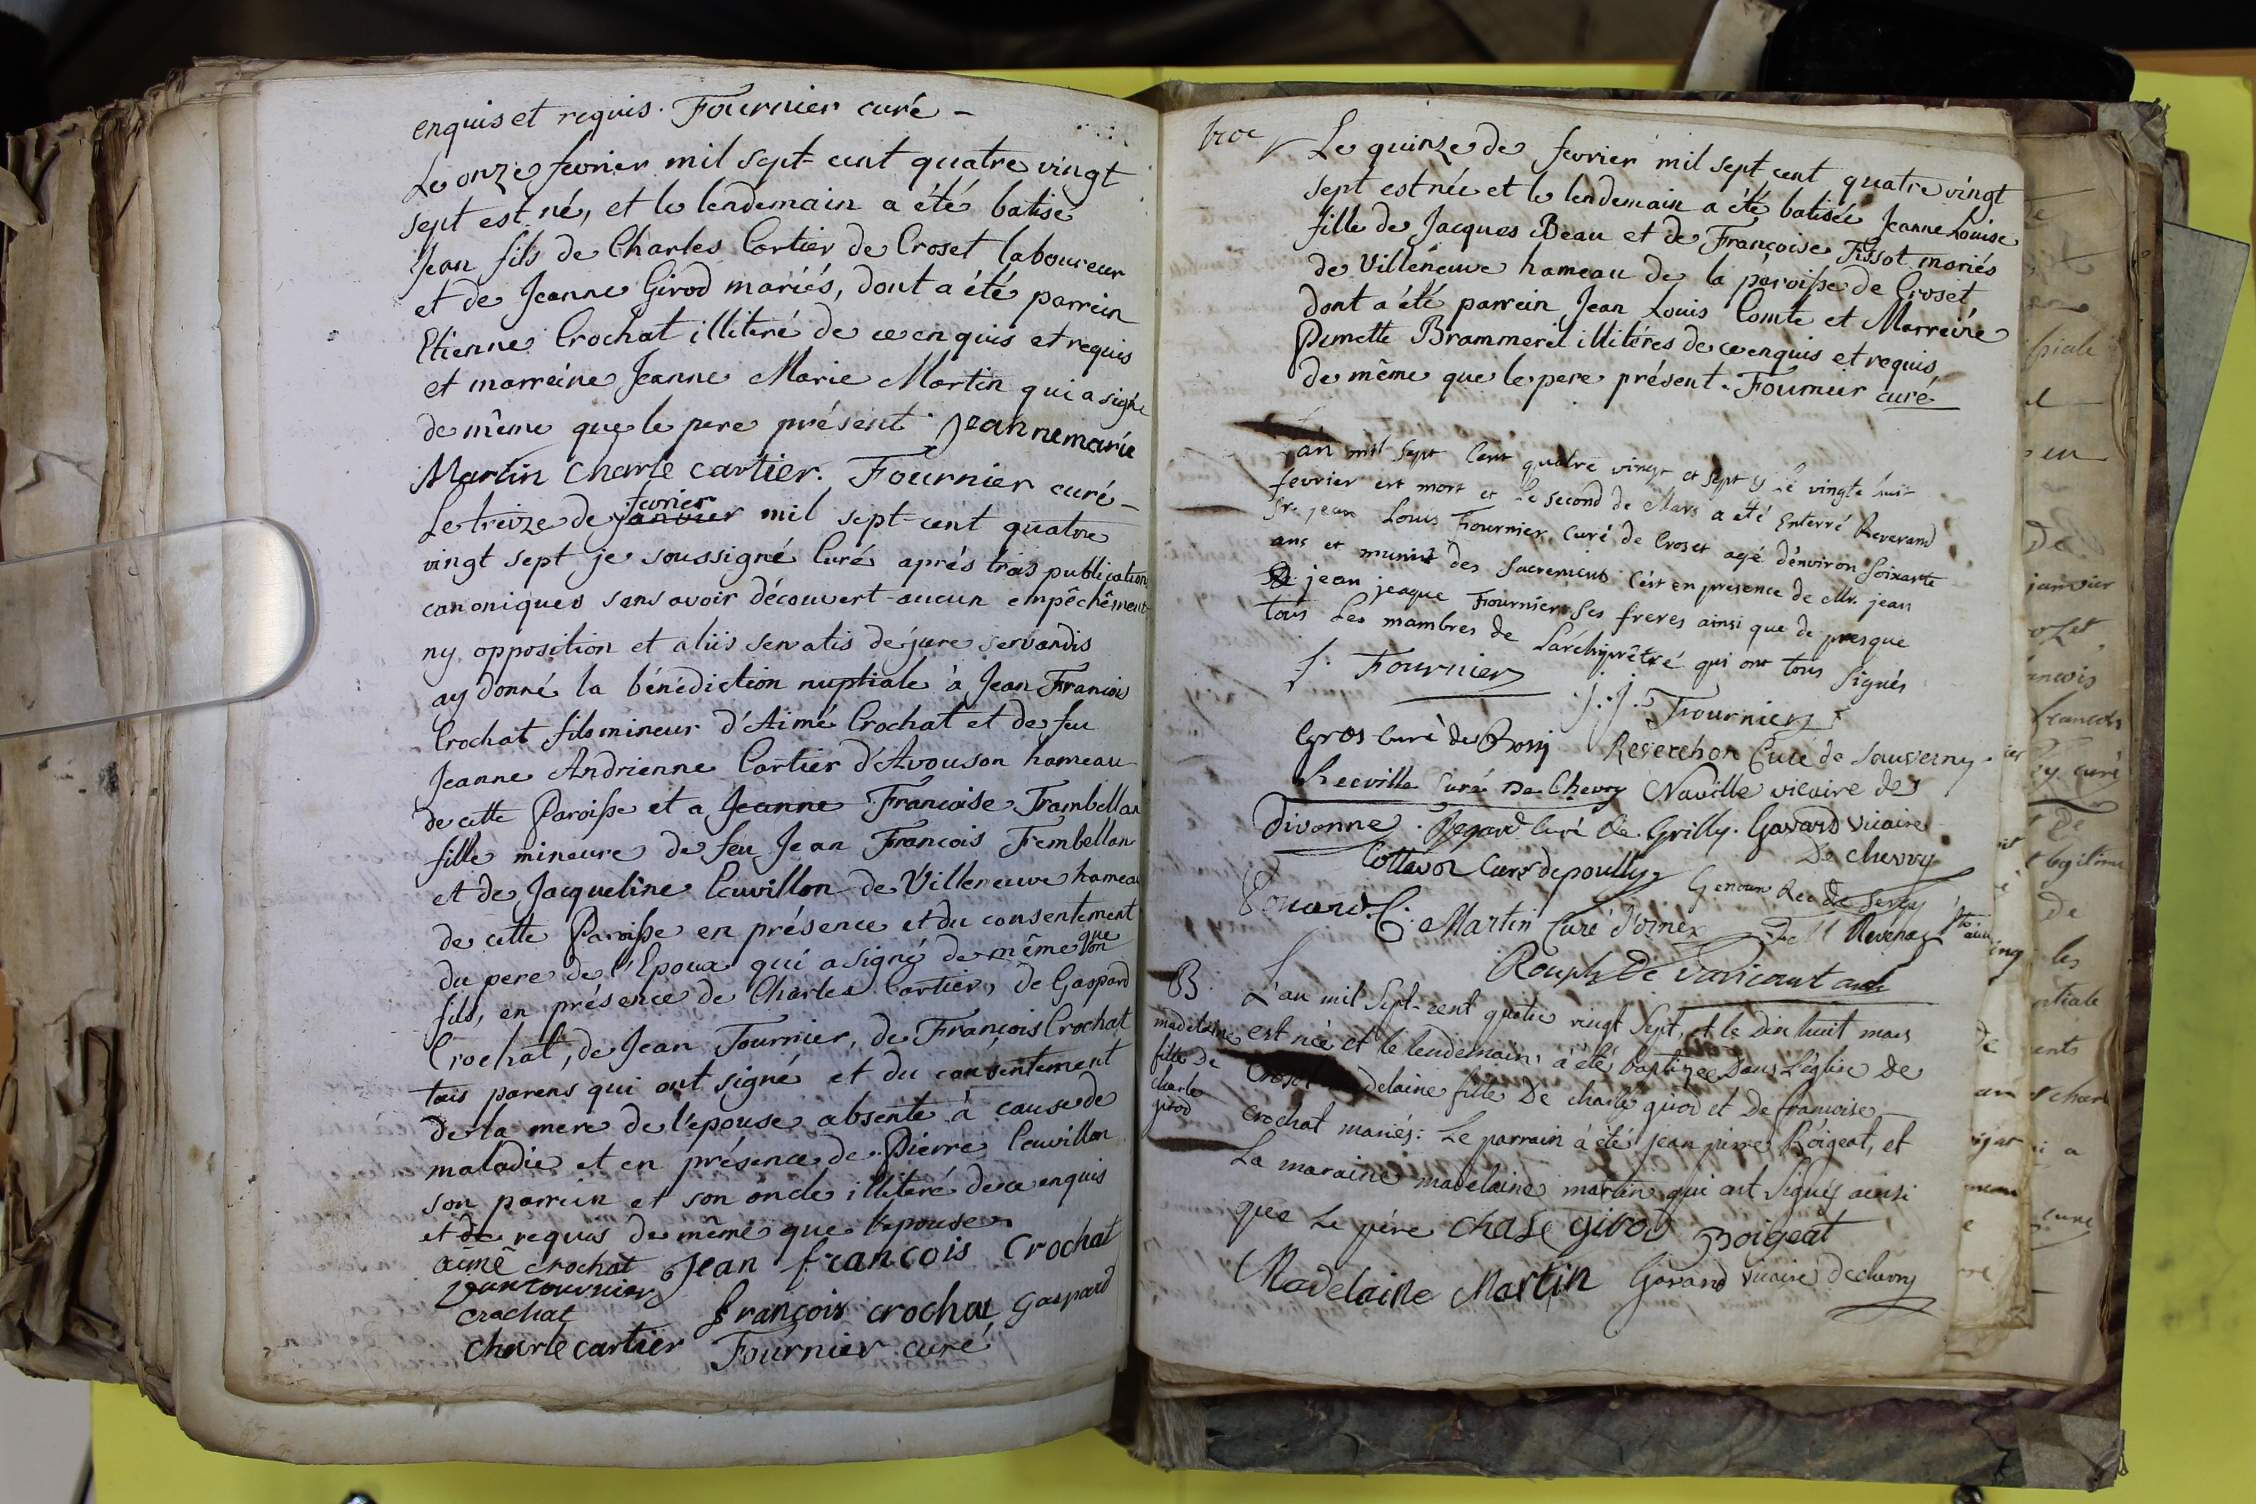 enquis et requis. Fournier curé -
Le onze fevrier mil sept-cent quatre vingt
sept est né, et le lendemain a été batisé
Jean fils de Charles Cartier de Croset laboureur
et de Jeanne Girod mariés, dont a été parrein
Etienne Crochat illiteré de ce enquis et requis
et marreine Jeanne Marie Martin qui a signé
de même que le pere présent. Jeanne marie
Martin Charle cartier. Fournier curé -
fevrier
Le treize de janvier mil sept-cent quatre
vingt sept je soussigné Curé aprés trois publication
canoniques sans avoir découvert aucun empêchement
ny opposition et aliis servatis de jure servandis
ay donné la bénédiction nuptiale à Jean François
Crochat fils mineur d'Aimé Crochat et de feu
Jeanne Andrienne Cartier d'Avouson hameau
de cette Paroisse et a Jeanne Francoise Trambellan
fille mineure de feu Jean François Trembellan
et de Jacqueline Cuvillon de Villeneuve hameau
de cette Paroisse en présence et du consentement
du pere de l'Epoux qui a signé de même que son
fils, en présence de Charles Cartier, de Gaspard
Crochat, de Jean Fournier, de François Crochat
tous parens qui ont signé et du consentement
de la mere de l'epouse absente à cause de
maladie et en présence de Pierre Cuvillon
son parrein et son oncle illiteré de ce enquis
et de requis de même que l'epouse
aimé crochat Jean francois Crochat
Jean Fournier
crochat françois crochat Gaspard
charle cartier Fournier curé
Le quinze de fevrier mil sept cent quatre vingt
sept est née et le lendemain a été batisée Jeanne Louise
fille de Jacques Beau et de Françoise Tissot mariés
de Villeneuve hameau de la paroisse de Croset
dont a été parrein Jean Louis Comte et Marreine
Pernette Brammerel illiterés de ce enquis et requis
de même que le pere présent. Fournier curé
L'an mil sept Cent quatre vingt et sept Le vingte huit
fevrier est mort et Le second de Mars a été Enterré Reverand
Sr. jean Louis Fournier, Curé de Croset agé d'environ soixante
ans et munit des sacremens C'est en presence de Mr. jean
jean jeaque Fournier ses freres ainsi que de presque
tous Les mambres de L'archiprêtré qui ont tous signés
f. Fournier
j. j. Fournier
Gros Curé de Reverchon Curé de Sauverny
Curé de Chevry Naville vicaire de
Divonne. Curé de Grilly. Gavard vicaire
De chevry
Cottavoz Curé de pouilly
C. Martin Curé d'ornex
Rouph de Varicourt
B
madelaine
fille de
charle
girod
L'an mil Sept-cent quatre vingt Sept, et le Dix huit mars
est née et le lendemain, à été baptizée Dans L'église De
Croset madelaine fille De charle girod et De francoise
Crochat mariés: Le parrain à été jean pierre Roigeat, et
La maraine madelaine martin qui ont Signés ainsi
que Le pére Charle girod Roigeat
Madelaine Martin Gavard vicaire de chevry